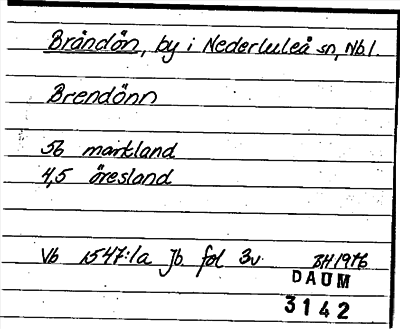 Brändön, by i Nederluleå sn, Nb l.
Brendönn
56 markland
4,5 öresland
Vb 1547:1a Jb fol 3v. BH 1976
DAUM
3142